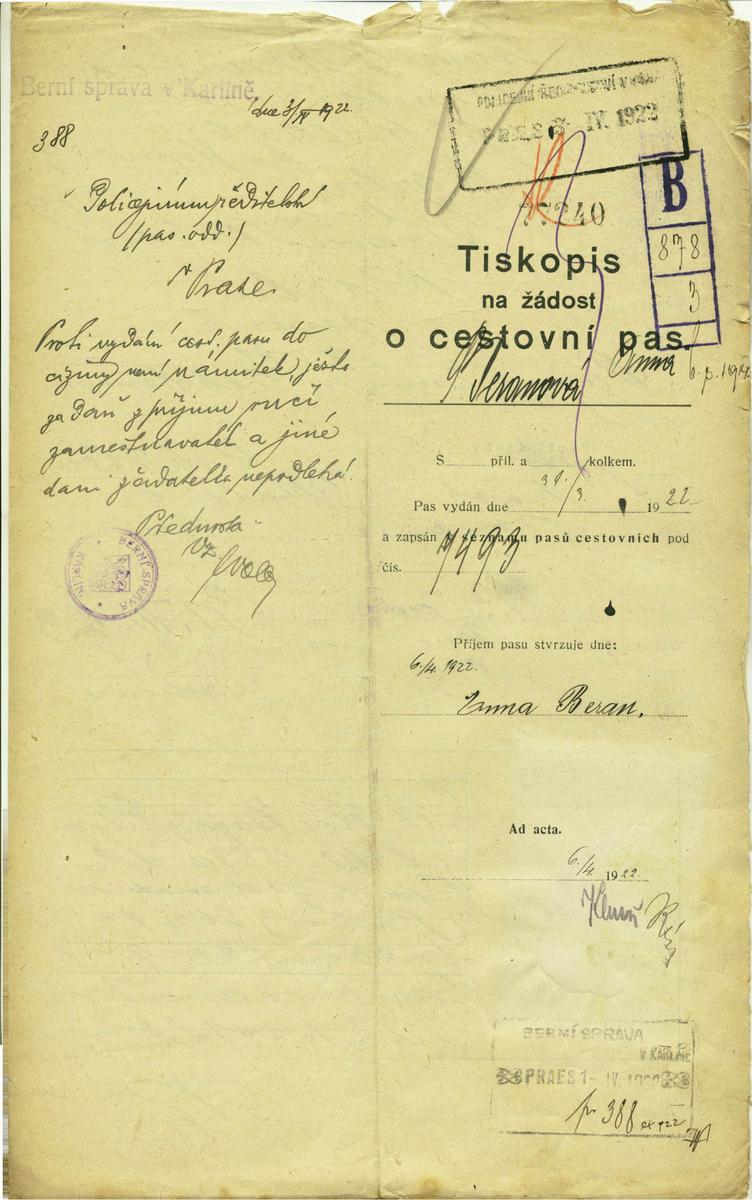 Berní správa v Karlíně.
dne 3/IV 1922.
388
Policejnímu ředitelství
(pas. odd.)
v Praze
Proti vydání cest. pasu do
ciziny není námitek, ježto
za daň z příjmu ručí
zaměstnavatel a jiné
dani žadatelka nepodlehá.
Přednosta
Vz
BERNÍ SPRÁVA
KARLÍN
POLICEJNÍ ŘEDITELSTVÍ V PRAZE
PRAES IV. 1922
77240
B
878
3
Tiskopis
na žádost
o cestovní pas.
Beranová Anna
S příl. a kolkem.
Pas vydán dne 31/3. 1922
a zapsán v seznamu pasů cestovních pod
čís. 7493
Příjem pasu stvrzuje dne:
6./4. 1922.
Anna Beran.
Ad acta.
6./4. 1922.
BERNÍ SPRÁVA
V KARLÍNĚ
PRAES 1- IV. 1922
388 ex 922